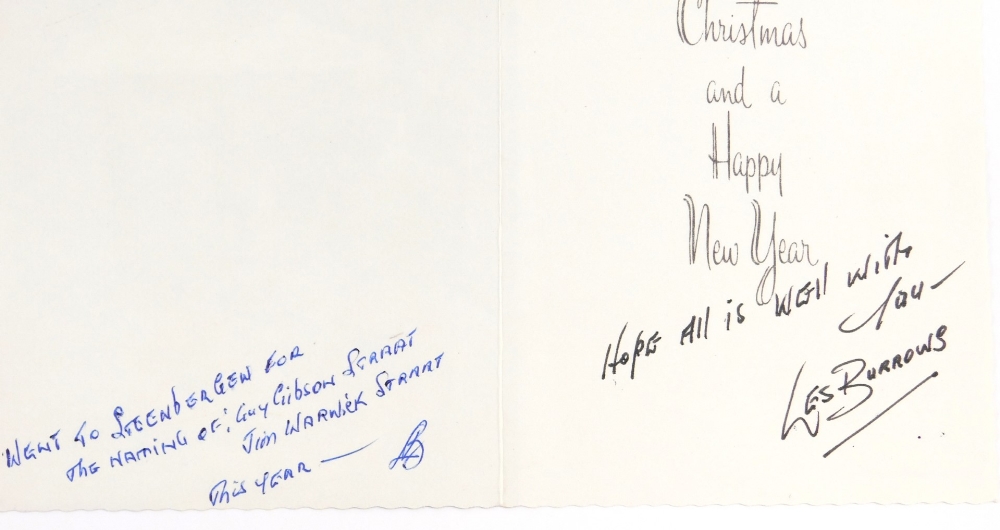 Went to Steenbergen for
the naming of: Guy Gibson Straat
Jim Warwick Straat
This year — LB
Christmas
and a
Happy
New Year
Hope all is well with
you –
Les Burrows